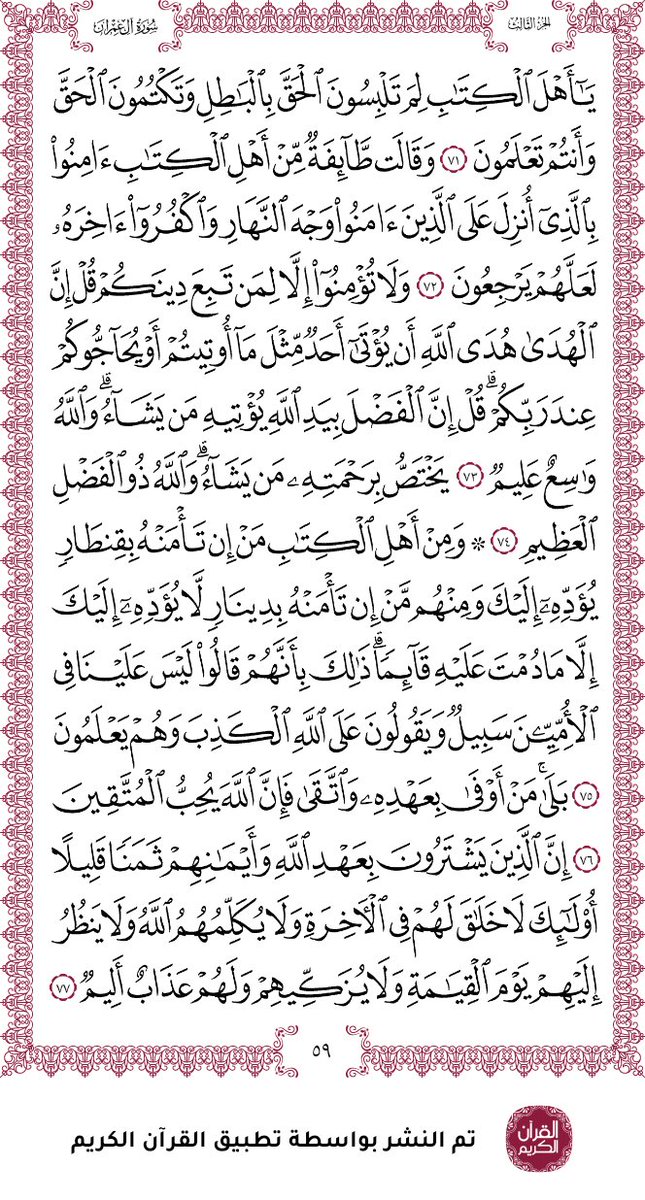 الجزء الثالث
سُورَةُ آلِ عِمْرَانَ
يَٰٓأَهْلَ ٱلْكِتَٰبِ لِمَ تَلْبِسُونَ ٱلْحَقَّ بِٱلْبَٰطِلِ وَتَكْتُمُونَ ٱلْحَقَّ
وَأَنتُمْ تَعْلَمُونَ ٧١ وَقَالَت طَّآئِفَةٌ مِّنْ أَهْلِ ٱلْكِتَٰبِ ءَامِنُوا۟
بِٱلَّذِىٓ أُنزِلَ عَلَى ٱلَّذِينَ ءَامَنُوا۟ وَجْهَ ٱلنَّهَارِ وَٱكْفُرُوٓا۟ ءَاخِرَهُۥ
لَعَلَّهُمْ يَرْجِعُونَ ٧٢ وَلَا تُؤْمِنُوٓا۟ إِلَّا لِمَن تَبِعَ دِينَكُمْ قُلْ إِنَّ
ٱلْهُدَىٰ هُدَى ٱللَّهِ أَن يُؤْتَىٰٓ أَحَدٌ مِّثْلَ مَآ أُوتِيتُمْ أَوْ يُحَآجُّوكُمْ
عِندَ رَبِّكُمْ ۗ قُلْ إِنَّ ٱلْفَضْلَ بِيَدِ ٱللَّهِ يُؤْتِيهِ مَن يَشَآءُ ۗ وَٱللَّهُ
وَٰسِعٌ عَلِيمٌ ٧٣ يَخْتَصُّ بِرَحْمَتِهِۦ مَن يَشَآءُ ۗ وَٱللَّهُ ذُو ٱلْفَضْلِ
ٱلْعَظِيمِ ٧٤ ۞ وَمِنْ أَهْلِ ٱلْكِتَٰبِ مَنْ إِن تَأْمَنْهُ بِقِنطَارٍ
يُؤَدِّهِۦٓ إِلَيْكَ وَمِنْهُم مَّنْ إِن تَأْمَنْهُ بِدِينَارٍ لَّا يُؤَدِّهِۦٓ إِلَيْكَ
إِلَّا مَا دُمْتَ عَلَيْهِ قَآئِمًا ۗ ذَٰلِكَ بِأَنَّهُمْ قَالُوا۟ لَيْسَ عَلَيْنَا فِى
ٱلْأُمِّيِّـۧنَ سَبِيلٌ وَيَقُولُونَ عَلَى ٱللَّهِ ٱلْكَذِبَ وَهُمْ يَعْلَمُونَ
٧٥ بَلَىٰ ۚ مَنْ أَوْفَىٰ بِعَهْدِهِۦ وَٱتَّقَىٰ فَإِنَّ ٱللَّهَ يُحِبُّ ٱلْمُتَّقِينَ
٧٦ إِنَّ ٱلَّذِينَ يَشْتَرُونَ بِعَهْدِ ٱللَّهِ وَأَيْمَٰنِهِمْ ثَمَنًا قَلِيلًا
أُو۟لَٰٓئِكَ لَا خَلَٰقَ لَهُمْ فِى ٱلْءَاخِرَةِ وَلَا يُكَلِّمُهُمُ ٱللَّهُ وَلَا يَنظُرُ
إِلَيْهِمْ يَوْمَ ٱلْقِيَٰمَةِ وَلَا يُزَكِّيهِمْ وَلَهُمْ عَذَابٌ أَلِيمٌ ٧٧
٥٩
القرآن
الكريم
تم النشر بواسطة تطبيق القرآن الكريم